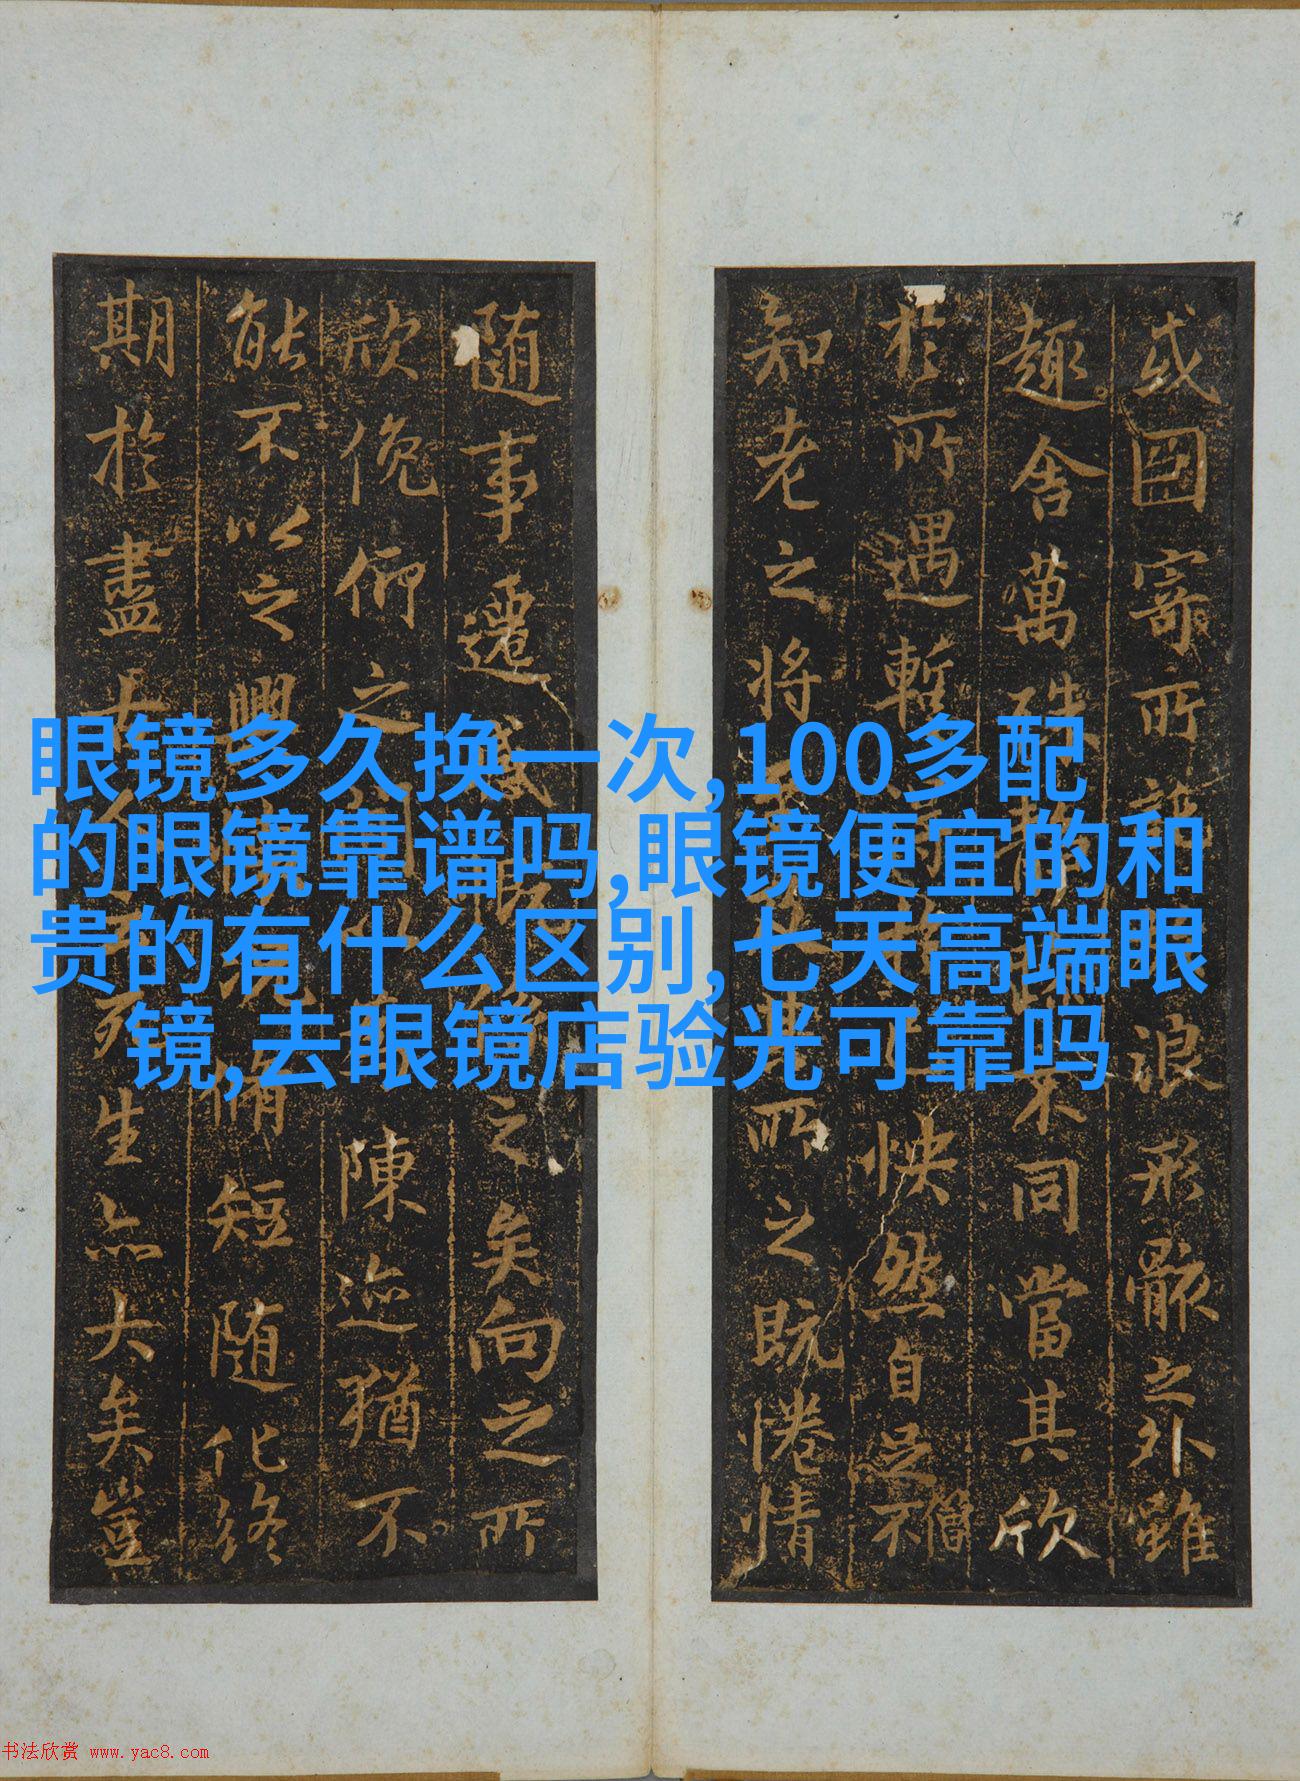 眼镜多久换一次,100多配
的眼镜靠谱吗,眼镜便宜的和
贵的有什么区别,七天高端眼
镜,去眼镜店验光可靠吗
或因寄所浪形骸之外雖
趣舍萬殊不同當其欣
於所遇暫怏然自足不
僧
知老之将其所之既惓情
随事遷感之矣向之所
欣俛仰之陳迹猶不
能不以之興脩短随化終
期於盡古人死生亦大矣豈
书法欣赏 www.yac8.com